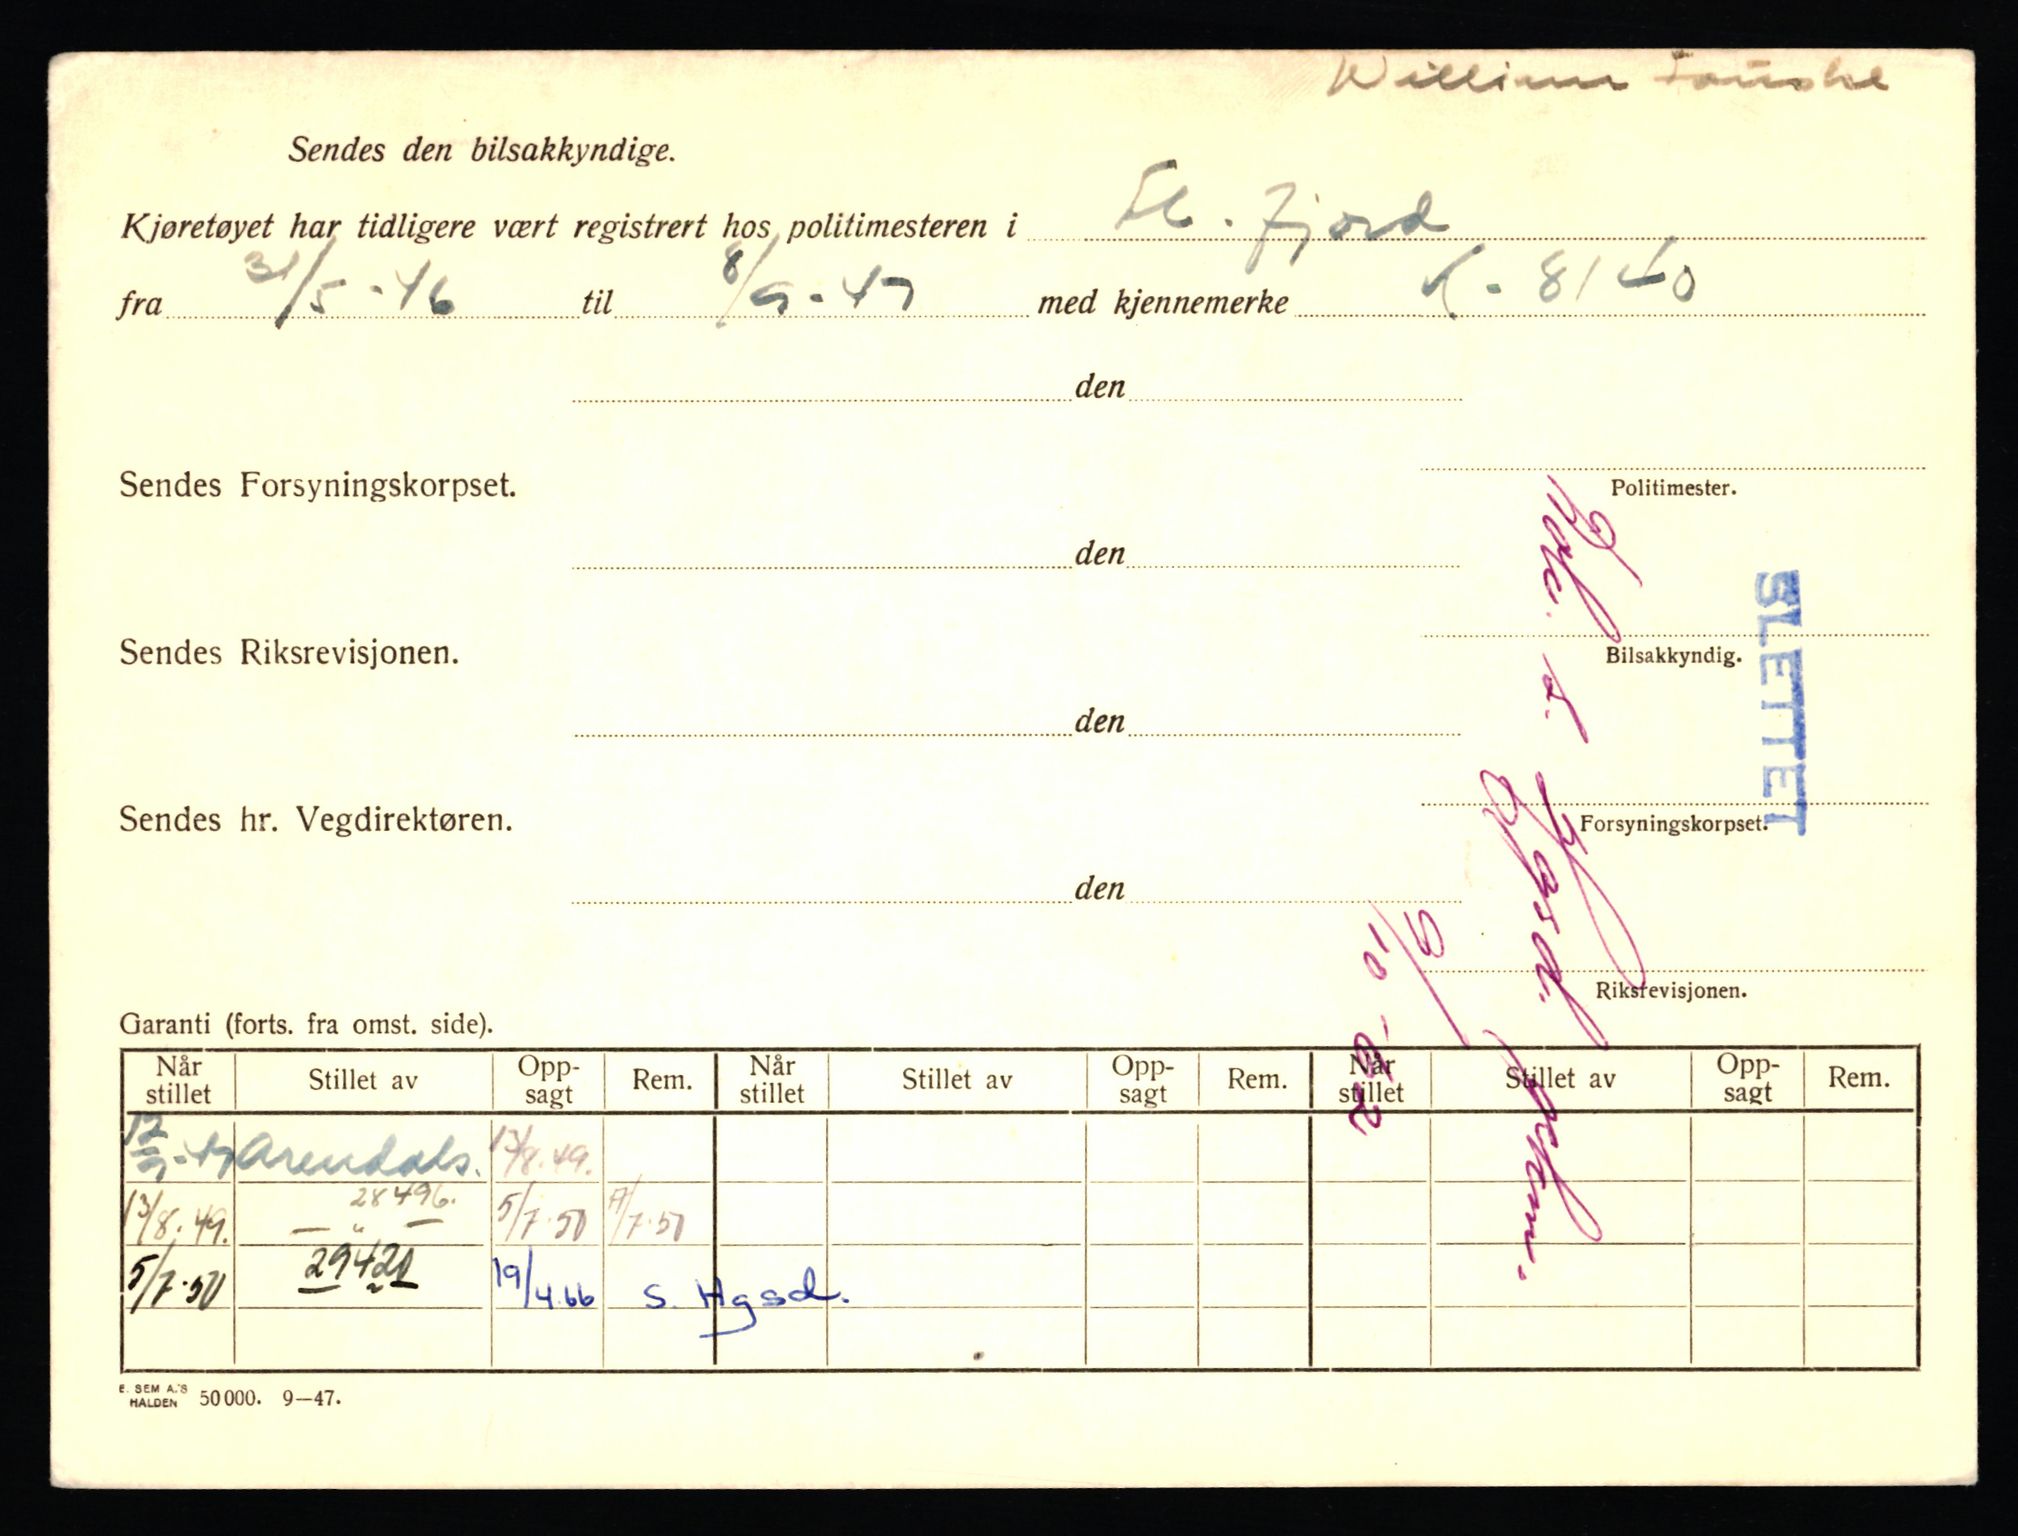 William
Sendes den bilsakkyndige.
Kjøretøyet har tidligere vært registrert hos politimesteren i Fl. fjord
fra 31/5-46 til 8/9-47 med kjennemerke K-8140
den
Politimester.
Sendes Forsyningskorpset.
den
Bilsakkyndig.
Sendes Riksrevisjonen.
den
Forsyningskorpset.
Sendes hr. Vegdirektøren.
den
Riksrevisjonen.
SLETTET
9/10-62
Garanti (forts. fra omst. side).
Når stillet Stillet av Opp-sagt Rem. Når stillet Stillet av Opp-sagt Rem. Når stillet Stillet av Opp-sagt Rem.
12/9-47 Arendals. 13/8.49.
13/8.49. — " — 28496. 5/7.50 7/7.50
5/7.50 29420 19/4.66 S. Hgsd.
E. SEM A/S HALDEN 50000. 9—47.